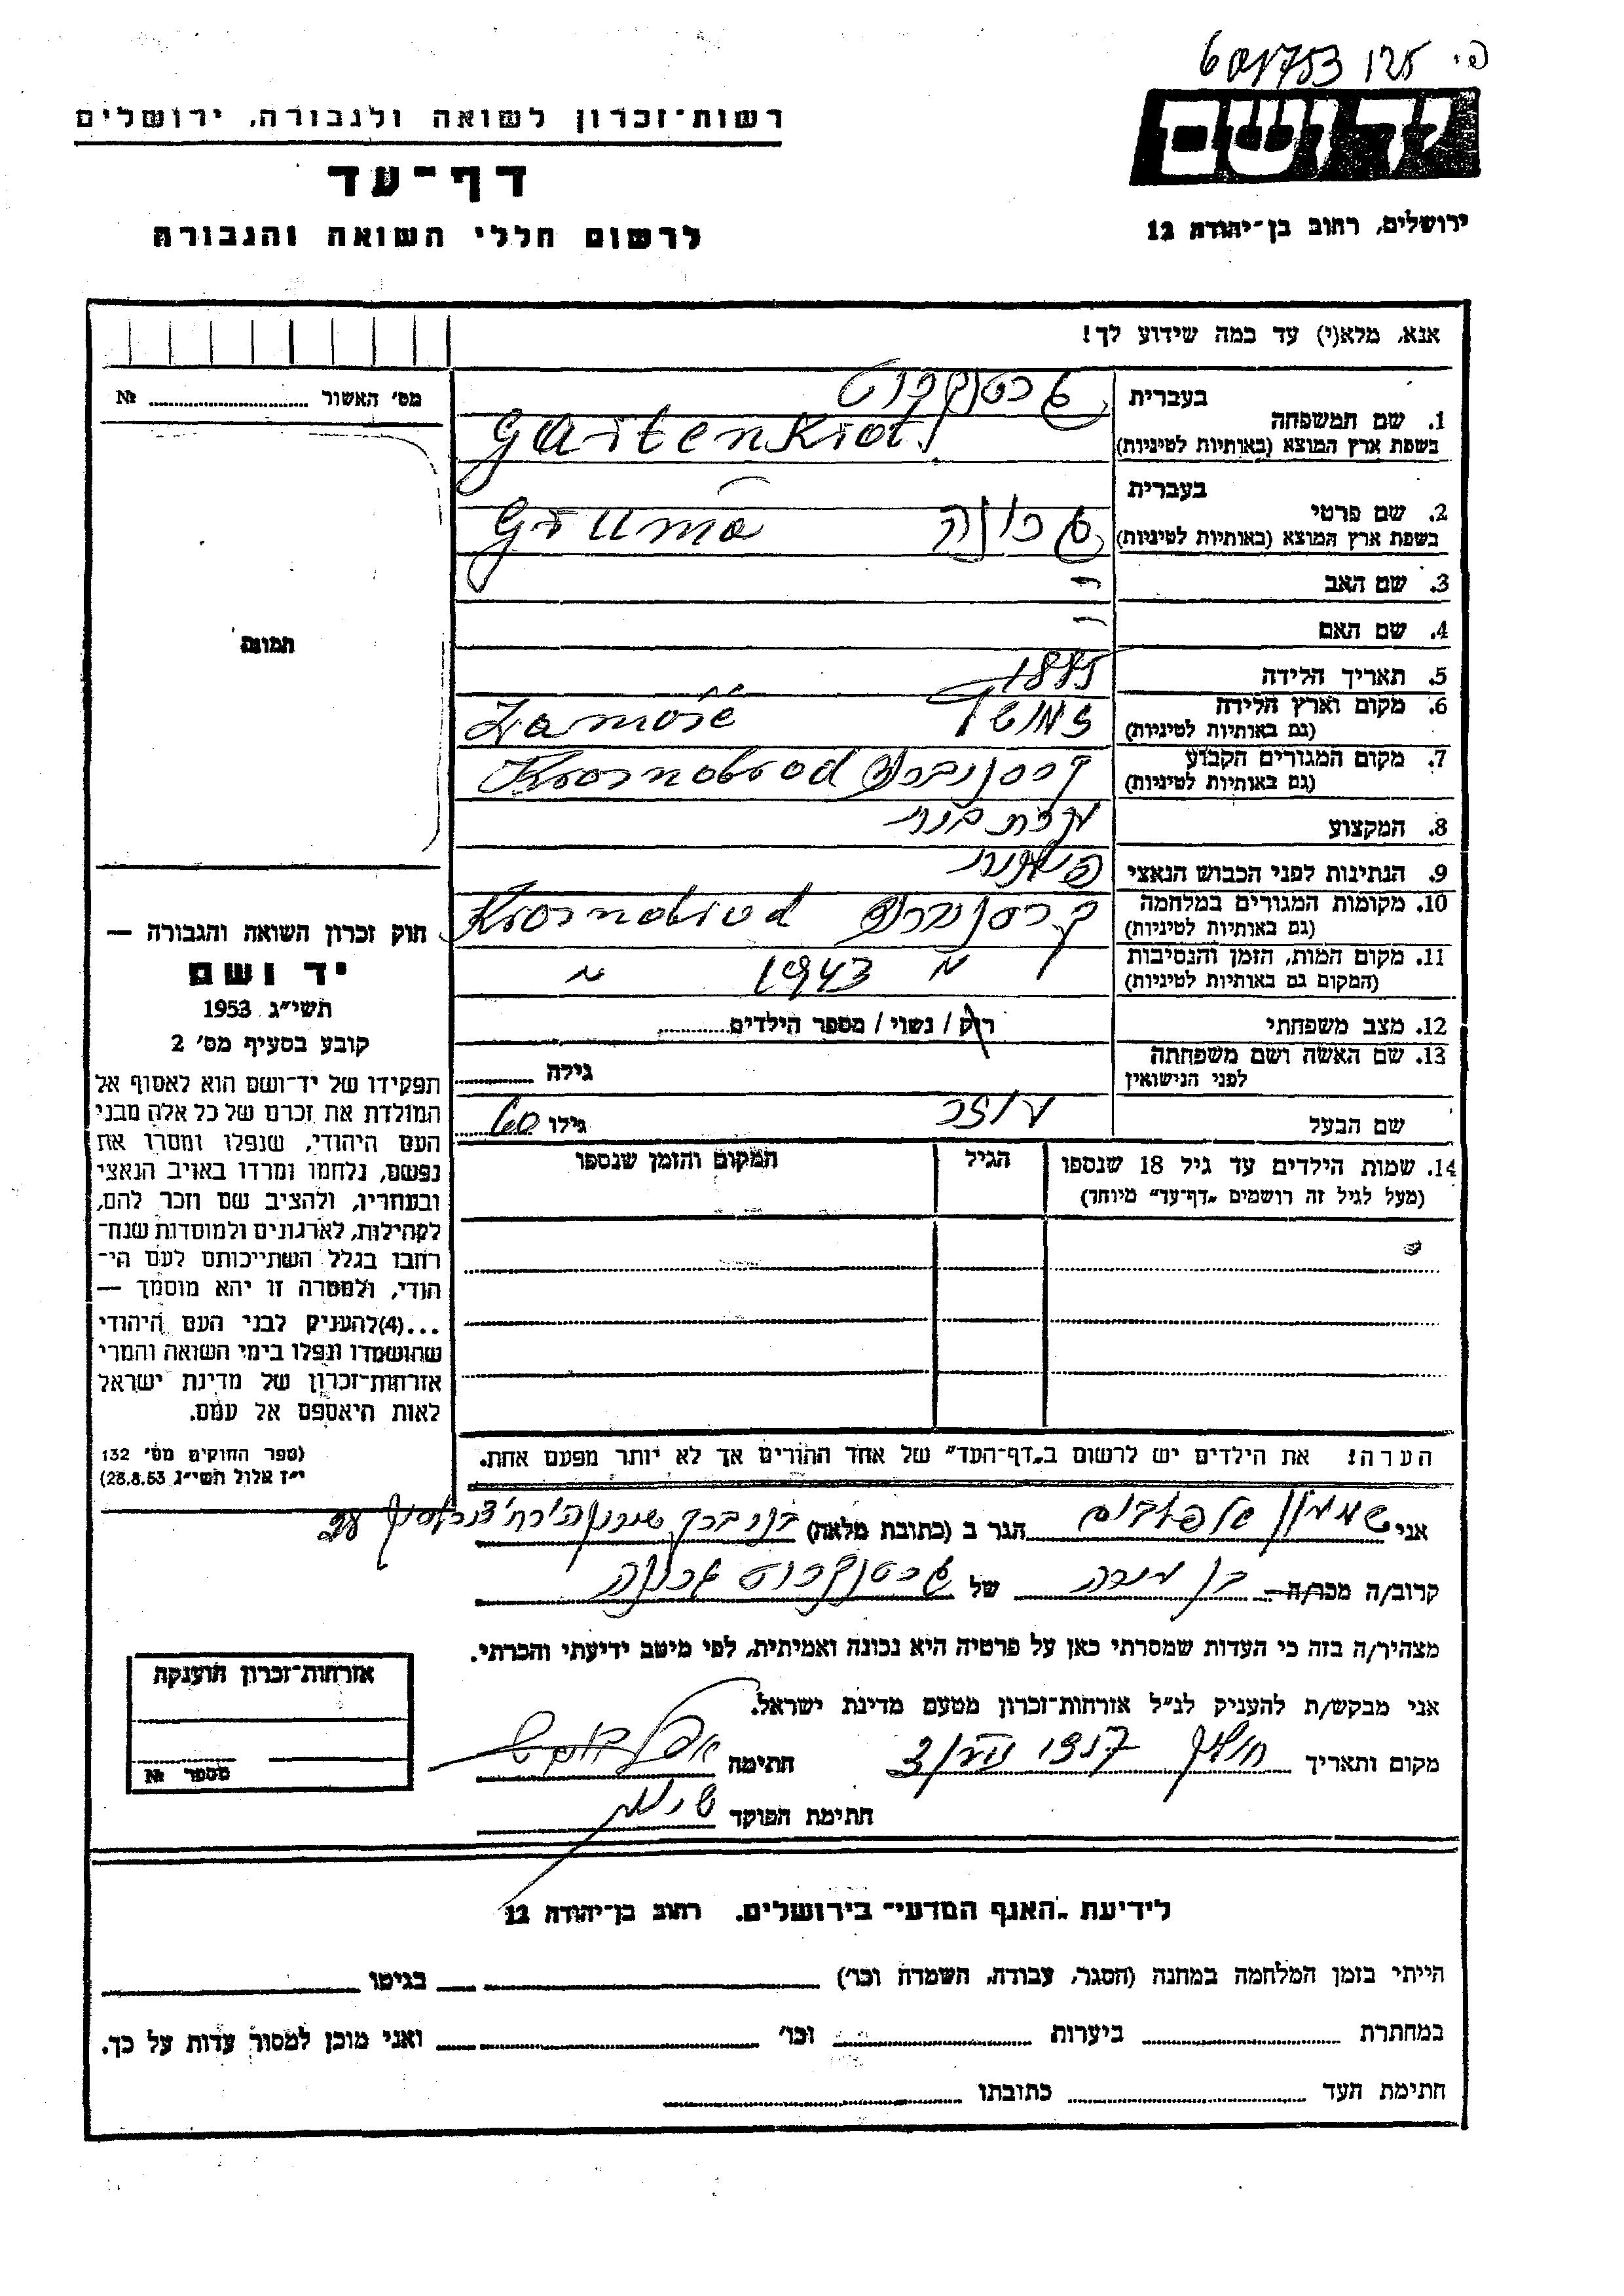 פי 125 601753
יד ושם
ירושלים, רחוב בן-יהודה 12
רשות-זכרון לשואה ולגבורה, ירושלים
דף-עד
לרשום חללי השואה והגבורה
אנא, מלא(י) עד כמה שידוע לך!
מס' האשור ........ №
תמונה
בעברית
1. שם המשפחה
בשפת ארץ המוצא (באותיות לטיניות)
גרטנקרוט
Gartenkrot
בעברית
2. שם פרטי
בשפת ארץ המוצא (באותיות לטיניות)
גרונה Gruma
3. שם האב -
4. שם האם -
5. תאריך הלידה 1885
6. מקום וארץ הלידה
(גם באותיות לטיניות)
זמושץ Zamość
7. מקום המגורים הקבוע
(גם באותיות לטיניות)
קרסנוברוד Krasnobrod
8. המקצוע עקרת בית
9. הנתינות לפני הכבוש הנאצי פולנית
10. מקומות המגורים במלחמה
(גם באותיות לטיניות)
קרסנוברוד Krasnobrod
11. מקום המות, הזמן והנסיבות
(המקום גם באותיות לטיניות)
1943
12. מצב משפחתי רוק / נשוי / מספר הילדים
13. שם האשה ושם משפחתה
לפני הנישואין
גילה
שם הבעל גילו 60
14. שמות הילדים עד גיל 18 שנספו
(מעל לגיל זה רושמים "דף-עד" מיוחד)
הגיל
המקום והזמן שנספו
הערה: את הילדים יש לרשום ב"דף-העד" של אחד ההורים אך לא יותר מפעם אחת.
חוק זכרון השואה והגבורה —
יד ושם
תשי"ג 1953
קובע בסעיף מס' 2
תפקידו של יד-ושם הוא לאסוף אל
המולדת את זכרם של כל אלה מבני
העם היהודי, שנפלו ומסרו את
נפשם, נלחמו ומרדו באויב הנאצי
ובעוזריו, ולהציב שם וזכר להם,
לקהילות, לארגונים ולמוסדות שנח-
רבו בגלל השתייכותם לעם הי-
הודי, ולמטרה זו יהא מוסמך —
...(4) להעניק לבני העם היהודי
שהושמדו ונפלו בימי השואה והמרי
אזרחות-זכרון של מדינת ישראל
לאות היאספם אל עמם.
(ספר החוקים מס' 132
י"ז אלול תשי"ג 28.8.53)
אני שמעון הגר ב (כתובת מלאה) בני ברק
קרוב/ה מכר/ה של גרטנקרוט גרונה
מצהיר/ה בזה כי העדות שמסרתי כאן על פרטיה היא נכונה ואמיתית, לפי מיטב ידיעתי והכרתי.
אני מבקש/ת להעניק לנ"ל אזרחות-זכרון מטעם מדינת ישראל.
מקום ותאריך חתימה
חתימת הפוקד
אזרחות-זכרון הוענקה
מספר №
לידיעת "האגף המדעי" בירושלים. רחוב בן-יהודה 12
הייתי בזמן המלחמה במחנה (הסגר, עבודה, השמדה וכו') בגיטו
במחתרת ביערות וכו' ואני מוכן למסור עדות על כך.
חתימת העד כתובתו